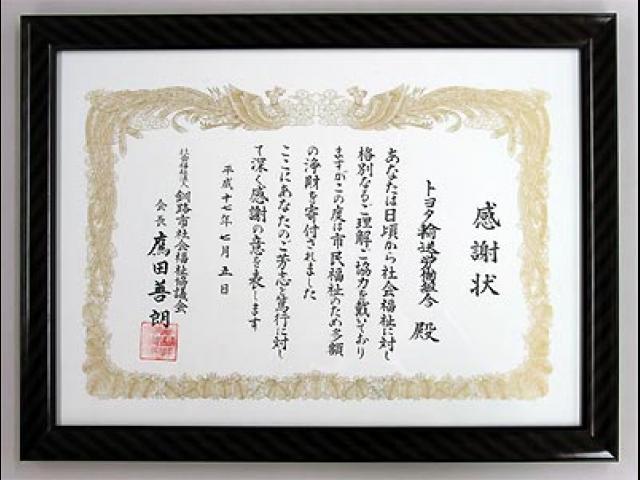 感謝状
トヨタ輸送労働組合 殿
あなたは日頃から社会福祉に対し
格別なるご理解ご協力を戴いており
ますがこの度は市民福祉のため多額
の浄財を寄付されました
ここにあなたのご芳志と篤行に対し
て深く感謝の意を表します
平成十七年七月五日
社会福祉法人 釧路市社会福祉協議会
会長 鷹田善朗